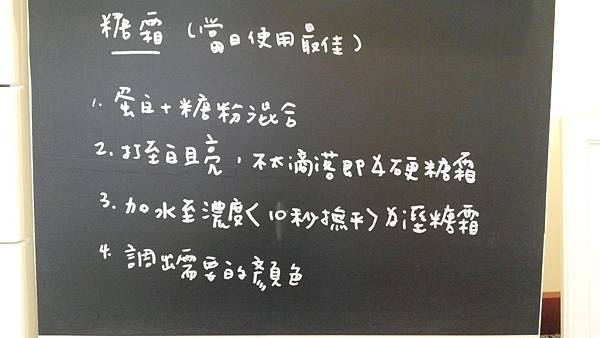 糖霜（當日使用最佳）
1. 蛋白+糖粉混合
2. 打至白且亮，不太滴落即為硬糖霜
3. 加水至濃度〈10秒撫平〉為溼糖霜
4. 調出需要的顏色